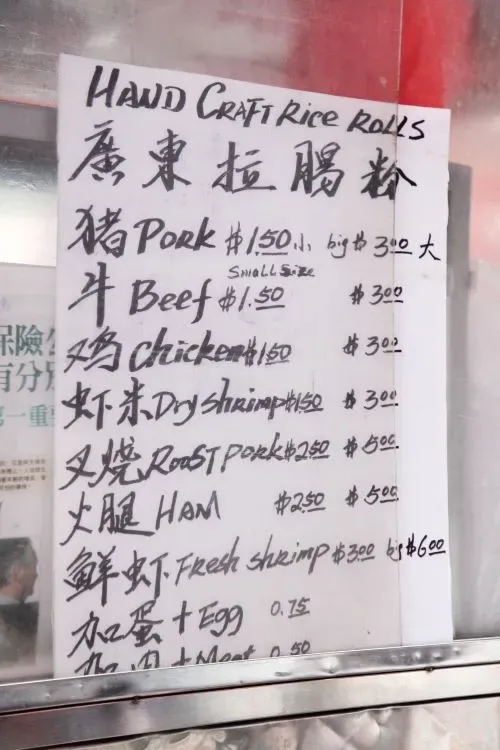 HAND CRAFT Rice ROLLS
廣東拉腸粉
猪 Pork $1.50 小 big $3.00 大
SMALL Size
牛 Beef $1.50 $3.00
鸡 chicken $1.50 $3.00
虾米 Dry shrimp $1.50 $3.00
叉烧 ROOST Pork $2.50 $5.00
火腿 HAM $2.50 $5.00
鲜虾 Fresh shrimp $3.00 big $6.00
加蛋 + Egg 0.75
加肉 + Meat 0.50
保險公
有分別
第一重要